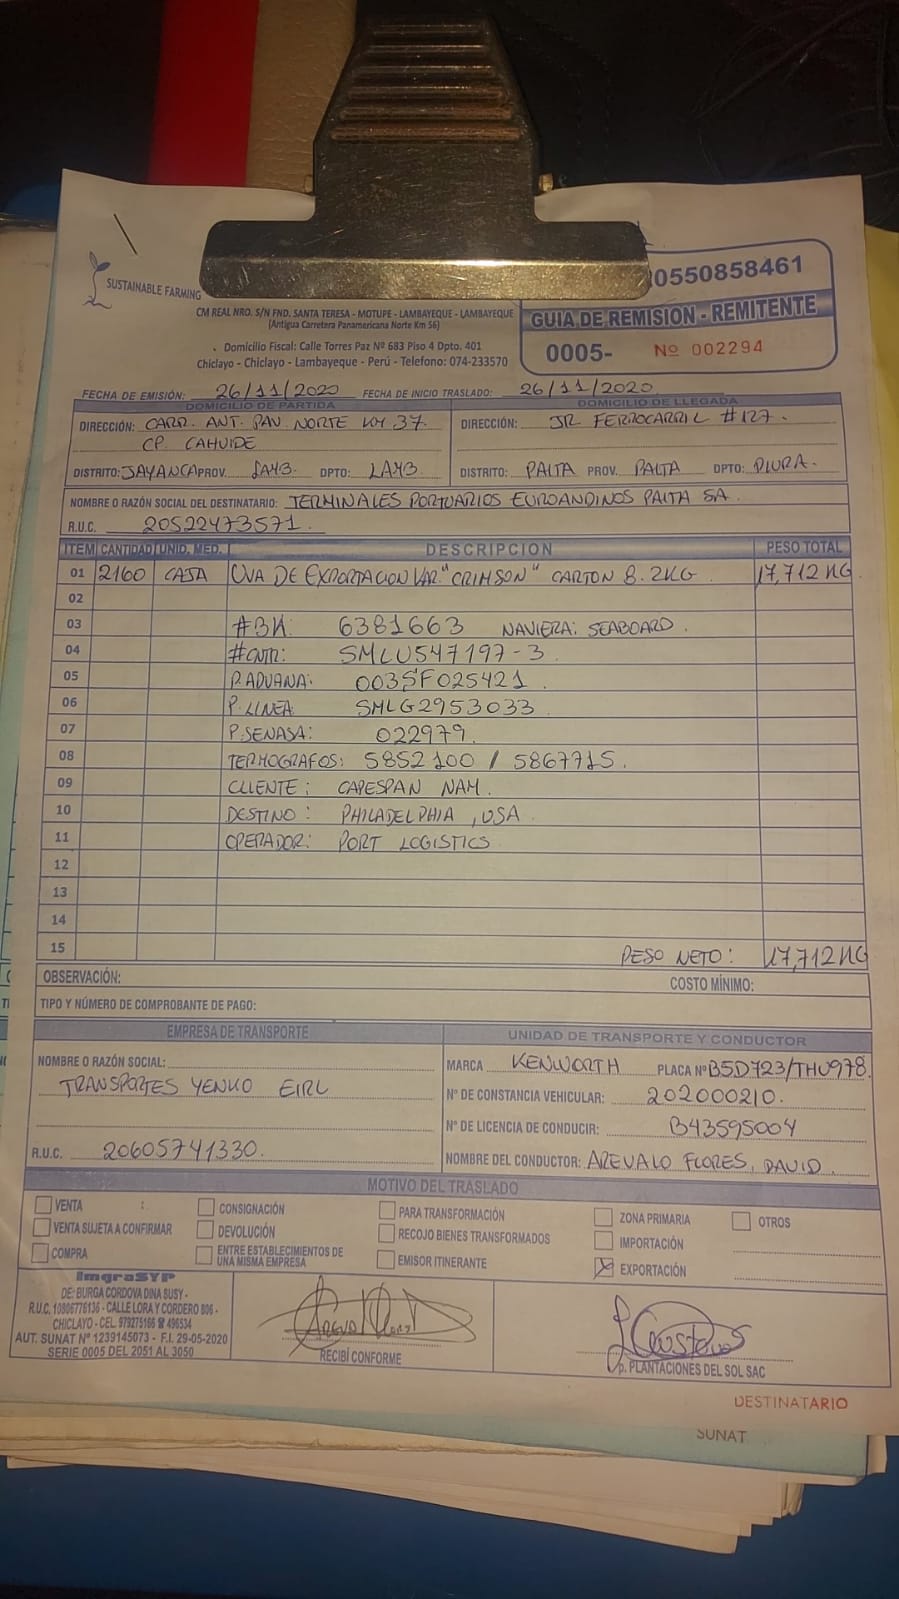 SUSTAINABLE FARMING
0550858461
CM REAL NRO. S/N FND. SANTA TERESA - MOTUPE - LAMBAYEQUE - LAMBAYEQUE
(Antigua Carretera Panamericana Norte Km 56)
GUIA DE REMISION - REMITENTE
. Domicilio Fiscal: Calle Torres Paz Nº 683 Piso 4 Dpto. 401
Chiclayo - Chiclayo - Lambayeque - Perú - Telefono: 074-233570
0005- Nº 002294
FECHA DE EMISIÓN: 26/11/2020 FECHA DE INICIO TRASLADO: 26/11/2020
DOMICILIO DE PARTIDA DOMICILIO DE LLEGADA
DIRECCIÓN: CARR. ANT. PAN. NORTE KM 37. DIRECCIÓN: JR FERROCARRIL #127.
CP. CAHUIDE
DISTRITO: JAYANCA PROV. LAMB. DPTO: LAMB. DISTRITO: PAITA PROV. PAITA DPTO: PIURA.
NOMBRE O RAZÓN SOCIAL DEL DESTINATARIO: TERMINALES PORTUARIOS EUROANDINOS PAITA SA.
R.U.C. 20522473571.
ITEM CANTIDAD UNID. MED. DESCRIPCION PESO TOTAL
01 2160 CAJA UVA DE EXPORTACION VAR. "CRIMSON" CARTON 8.2KG 17,712 KG
02
03 #BK: 6381663 NAVIERA: SEABOARD.
04 #CNTR: SMLU547197-3
05 P.ADUANA: 003SF025421.
06 P.LINEA: SMLG2953033
07 P.SENASA: 022979.
08 TERMOGRAFOS: 5852100 / 5867715.
09 CLIENTE: CAPESPAN NAM.
10 DESTINO: PHILADELPHIA, USA
11 OPERADOR: PORT LOGISTICS
12
13
14
15 PESO NETO: 17,712 KG
OBSERVACIÓN: COSTO MÍNIMO:
TIPO Y NÚMERO DE COMPROBANTE DE PAGO:
EMPRESA DE TRANSPORTE UNIDAD DE TRANSPORTE Y CONDUCTOR
NOMBRE O RAZÓN SOCIAL: MARCA KENWORTH PLACA Nº B5D723/THU978.
TRANSPORTES YENKO EIRL Nº DE CONSTANCIA VEHICULAR: 202000210.
Nº DE LICENCIA DE CONDUCIR: B43595004
R.U.C. 20605741330. NOMBRE DEL CONDUCTOR: AREVALO FLORES, DAVID.
MOTIVO DEL TRASLADO
VENTA : CONSIGNACIÓN PARA TRANSFORMACIÓN ZONA PRIMARIA OTROS
VENTA SUJETA A CONFIRMAR DEVOLUCIÓN RECOJO BIENES TRANSFORMADOS IMPORTACIÓN
COMPRA ENTRE ESTABLECIMIENTOS DE UNA MISMA EMPRESA EMISOR ITINERANTE X EXPORTACIÓN
ImgraSYP
DE: BURGA CORDOVA DINA SUSY -
R.U.C. 10806776136 - CALLE LORA Y CORDERO 806 -
CHICLAYO - CEL. 979275166 ☎ 496534
AUT. SUNAT Nº 1239145073 - F.I. 29-05-2020
SERIE 0005 DEL 2051 AL 3050
RECIBÍ CONFORME
p. PLANTACIONES DEL SOL SAC
DESTINATARIO
SUNAT